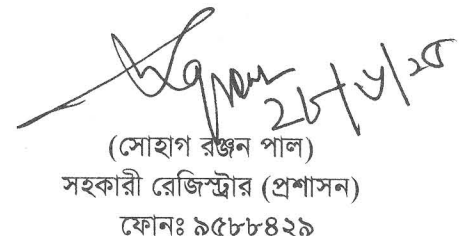 (সোহাগ রঞ্জন পাল)
সহকারী রেজিস্ট্রার (প্রশাসন)
ফোনঃ ৯৫৮৮৪২৯